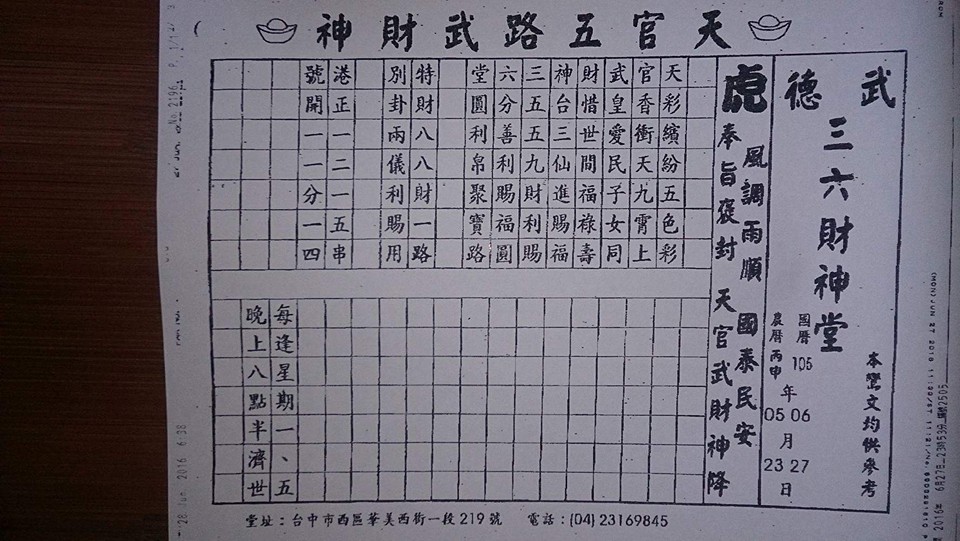 天官五路武財神
武德
三六財神堂
本鸞文均供參考
國曆105年06月27日
農曆丙申05 23
虎
風調雨順 國泰民安
奉旨褒封 天官武財神降
天彩繽紛五色彩
官香衝天九霄上
武皇愛民子女同
財惜世間福祿壽
神台三仙進賜福
三五五九財利賜
六分善利賜福圓
堂圓利帛聚寶路
特財八八財一路
別卦兩儀利賜用
港正一二一五串
號開一一分一四
每逢星期一、五
晚上八點半濟世
堂址：台中市西區華美西街一段219號 電話：(04)23169845
No. 2196 P. 1/1
2016 6:38